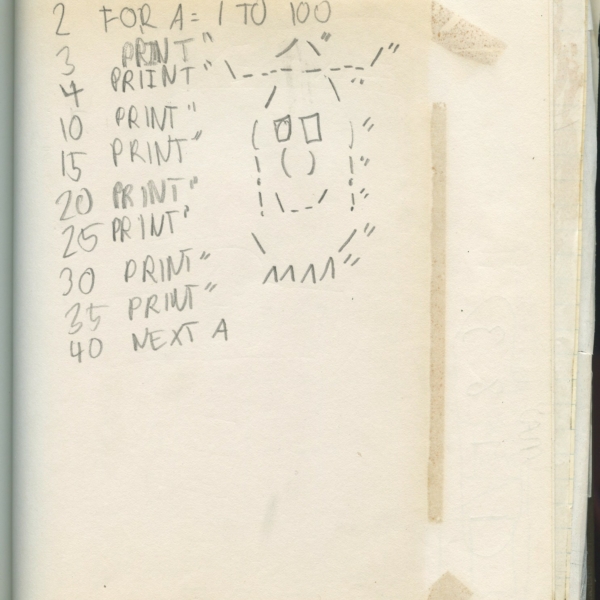 2 FOR A = 1 TO 100
3 PRINT" /\"
4 PRIINT" \-----------/"
10 PRINT" / \"
15 PRINT" ( □ □ )"
20 PRINT" ! ( ) !"
25 PRINT" ! \_-/ !"
30 PRINT" \ /"
35 PRINT" ^^^^"
40 NEXT A